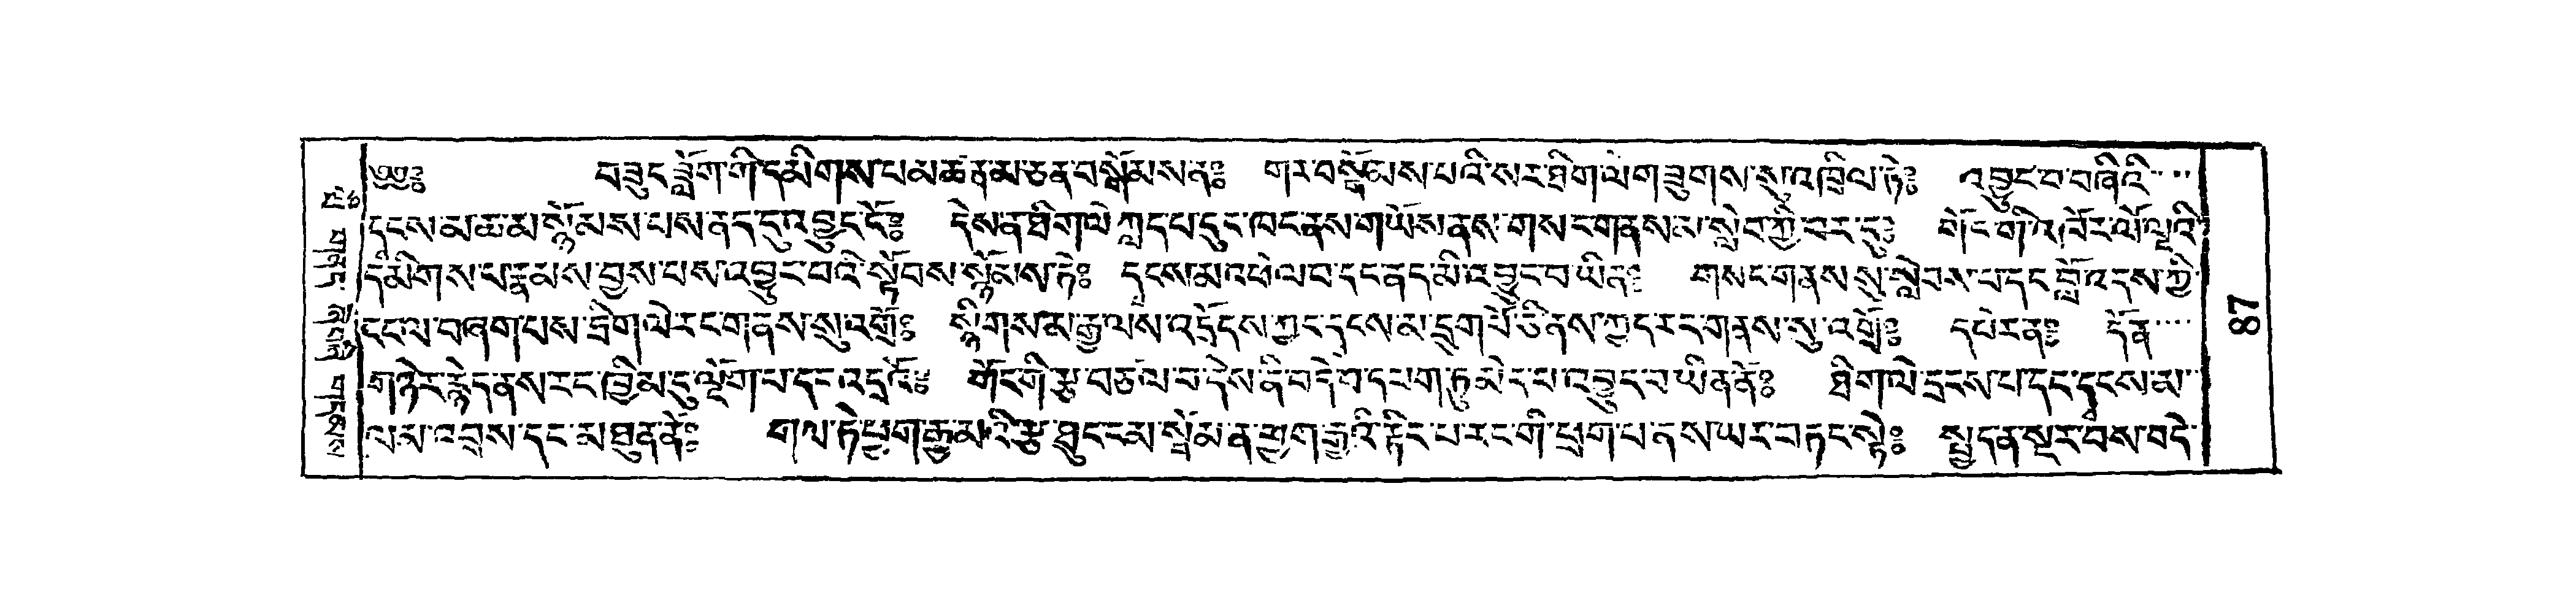 ༄༅༔ བཟུང་བློག་གི་དམིགས་པ་མཚན་མ་ཅན་བསྒོམས་ན༔ གར་བསྒོམས་པའི་སར་ཐིག་ལེ་གཟུགས་སུ་འཁྲིལ་ཏེ༔ འབྱུང་བ་བཞིའི་
དྭངས་མ་ཆ་མ་སྙོམས་པས་ནད་དུ་འབྱུང་ངོ༔ དེས་ན་ཐིག་ལེ་ཀླད་པ་དུང་ཁང་ནས་གཡོས་ནས་གསང་གནས་མ་སླེབ་ཀྱི་བར་དུ༔ གོང་གི་འཁོར་ལོ་ལྔའི་
དམིགས་པ་རྣམས་བྱས་པས་འབྱུང་བའི་སྟོབས་སྙོམས་ཏེ༔ དྭངས་མ་འཕེལ་བ་དང་ནད་མི་འབྱུང་བ་ཡིན༔ གསང་གནས་སུ་སླེབས་པ་དང་བློ་འདས་ཀྱི་
ངང་ལ་བཞག་པས་ཐིག་ལེ་རང་གནས་སུ་འགྲོ༔ སྙིགས་མ་རྒྱ་ལས་འདོདས་ཀྱང་དྭངས་མ་དྲུག་པོ་ཅི་ནས་ཀྱང་རང་གནས་སུ་འགྲོ༔ དཔེར་ན༔ དོན་
གཉེར་རྙེད་ནས་རང་ཁྱིམ་དུ་ལྡོག་པ་དང་འདྲའོ༔ གོང་གི་རྩ་བཅལ་བ་དེས་ནི་བདེ་བ་དཔག་ཏུ་མེད་པ་འབྱུང་བ་ཡིན་ནོ༔ ཐིག་ལེ་དྲངས་པ་དང་དྭངས་མ་
ལམ་འབྲས་དང་མཐུན་ནོ༔ གལ་ཏེ་ཕྱག་རྒྱ་མའི་རྩ་ཐུང་ངམ་སྦོམ་ན་ཕྱག་རྒྱའི་རྟིང་པ་རང་གི་ཕྲག་པ་ནས་ཡར་བཏང་སྟེ༔ སྤྱད་ན་སྔར་བས་བདེ་